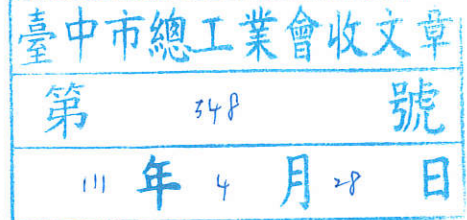 臺中市總工業會收文章
第 348 號
111 年 4 月 28 日